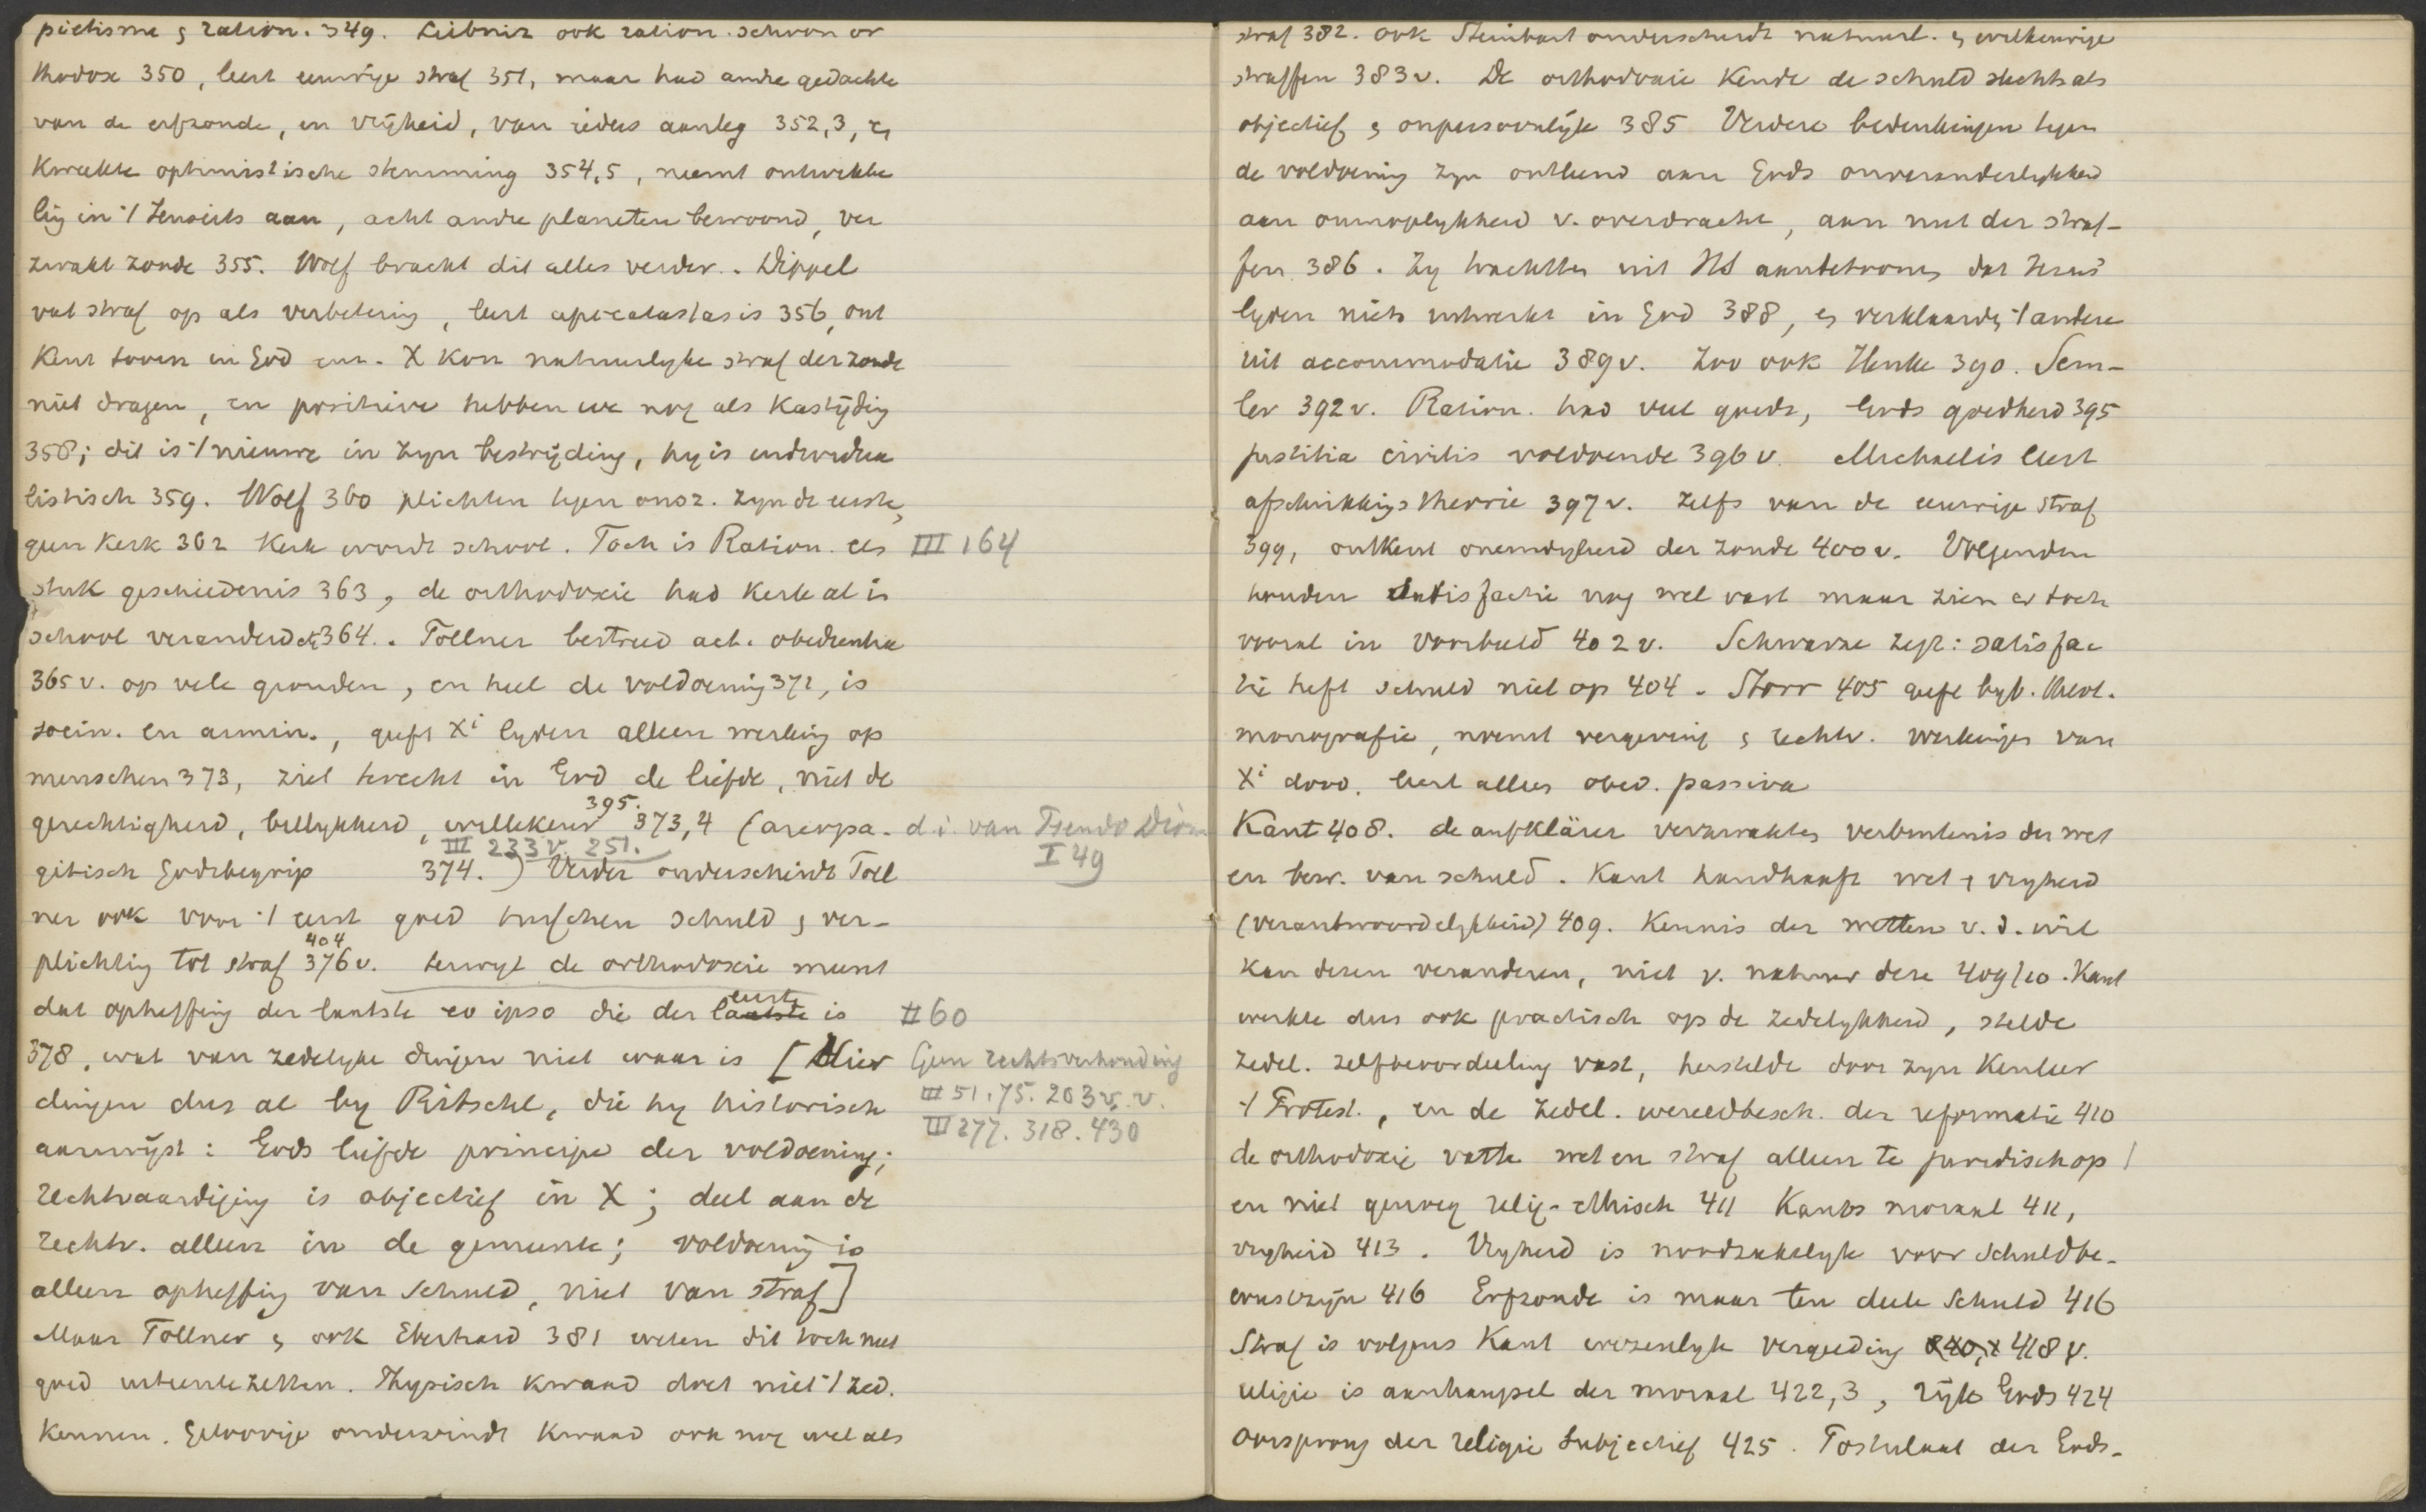 pietisme & ration. 349. Leibniz ook ration. schoon or
thodox 350, leert eeuwige straf 351, maar had andre gedachte
van de erfzonde, en vrijheid, van ieders aanleg 352,3, en
kweekte optimistische stemming 354,5, neemt ontwikke
lig in 't Jenseits aan, acht andre planeten bewoond, ver
zwakt zonde 355. Wolf bracht dit alles verder. Dippel
vat straf op als verbetering, leert apocatastasis 356, ont
kent toorn in God enz. X kon natuurlyke straf der zonde
niet dragen, en positieve hebben we nog als kastijdig
358; dit is 't nieuwe in zyn bestrijding, hy is individua
listisch 359. Wolf 360 plichten tegen onsz. zyn de eerste,
geen kerk 362 Kerk wordt school. Toch is Ration. als III 164
stuk geschiedenis 363, de orthodoxie had kerk al in
school veranderd 364. Töllner bestreed act. obedientia
365 v. op vele gronden, en heel de voldoening 372, is
socin. en armin., geeft Xi lyden alleen werking op
menschen 373, ziet terecht in God de liefde, niet de
395.
gerechtigheid, billykheid, willekeur 373,4 (areopa- d.i. van Pseudo Dion
III 233 v. 251. I 49
gitisch Godsbegrip 374.) Verder onderscheidt Töll
ner ook voor 't eerst goed tusschen schuld & ver-
404
plichtig tot straf 376 v. terwyl de orthodoxie meent
eerste
dat opheffing der laatste eo ipso die der laatste is II 60
378, wat van zedelyke dingen niet waar is [Hier Geen rechtsverhouding
dingen dus al by Ritschl, die hy historisch III 51.75.203 v.v.
aanwijst: Gods liefde principe der voldoening; III 277. 318. 430
rechtvaardiging is objectief in X; deel aan de
rechtv. alleen in de gemeente; voldoening is
alleen opheffing van schuld, niet van straf]
Maar Töllner & ook Eberhard 381 weten dit toch niet
goed uiteentezetten. Physisch kwaad doet niet 't zed.
kennen. Geloovige ondervindt kwaad ook nog wel als
straf 382. ook Steinbart onderscheidt natuurl. & willekeurige
straffen 383 v. De orthodoxie kende de schuld slechts als
objectief & onpersoonlijk 385 Verdere bedenkingen tegen
de voldoening zyn ontleend aan Gods onveranderlykheid
aan onmogelykheid v. overdracht, aan nut der straf-
fen 386. Zy trachtten uit NT aantetoonen dat Jezus'
lyden niets uitwerkt in God 388, & verklaarde 't andere
uit accommodatie 389 v. Zoo ook Henke 390. Sem-
ler 392 v. Ration. had veel goeds, Gods goedheid 395
justitia civilis voldoende 396 v. Michaelis leert
afschrikkigs theorie 397 v. zelfs van de eeuwige straf
399, ontkent oneindigheid der zonde 400 v. Volgenden
houden satisfactie nog wel vast maar zien er toch
vooral in voorbeeld 402 v. Schwarze zegt: satisfac
tie heft schuld niet op 404. Storr 405 geeft byb. theol.
monografie, noemt vergeving & rechtv. werkingen van
Xi dood. leert alleen obed. passiva
Kant 408. de aufklärer verzwakten verbintenis der wet
en bew. van schuld. Kant handhaaft wet & vryheid
(verantwoordelykheid) 409. Kennis der wetten v. d. wil
kan dezen veranderen, niet v. natuur deze 409/10. Kant
werkte dus ook practisch op de zedelykheid, stelde
zedel. zelfbeoordeeling vast, herstelde door zyn Kentheor
't Protest., en de zedel. wereldbesch. der reformatie 410
de orthodoxie vatte wet en straf alleen te juridisch op
en niet genoeg relig-ethisch 411 Kants moraal 411,
vryheid 413. Vryheid is noodzakelyk voor schuldbe-
wustzijn 416 Erfzonde is maar ten deele schuld 416
Straf is volgens Kant wezenlyk vergelding 418 v.
religie is aanhangsel der moraal 422,3, rijk Gods 424
oorsprong der religie subjectief 425. Postulaat der Gods-